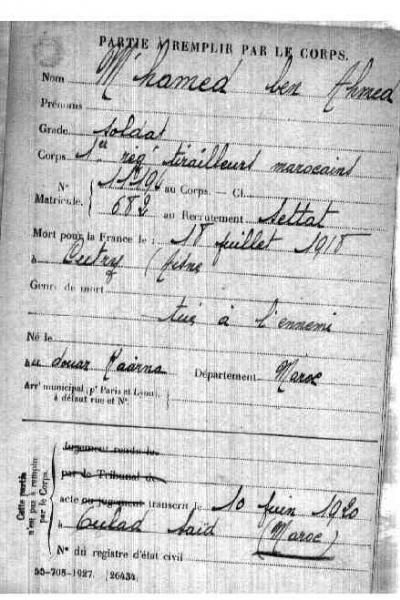 PARTIE À REMPLIR PAR LE CORPS.
Nom M'hamed ben Ahmed
Prénoms
Grade soldat
Corps 1er régt tirailleurs marocains
N° 11196 au Corps. — Cl.
Matricule. 682 au Recrutement Settat
Mort pour la France le : 18 juillet 1918
à Cutry (Aisne
Genre de mort
tué à l'ennemi
Né le
au douar Département Maroc
Arrt municipal (pr Paris et Lyon), à défaut rue et N°.
Cette partie n'est pas à remplir par le Corps.
Jugement rendu le
par le Tribunal de
acte ou jugement transcrit le 10 juin 1920
à Oulad Saïd (Maroc)
N° du registre d'état civil
55-708-1927. [26434.